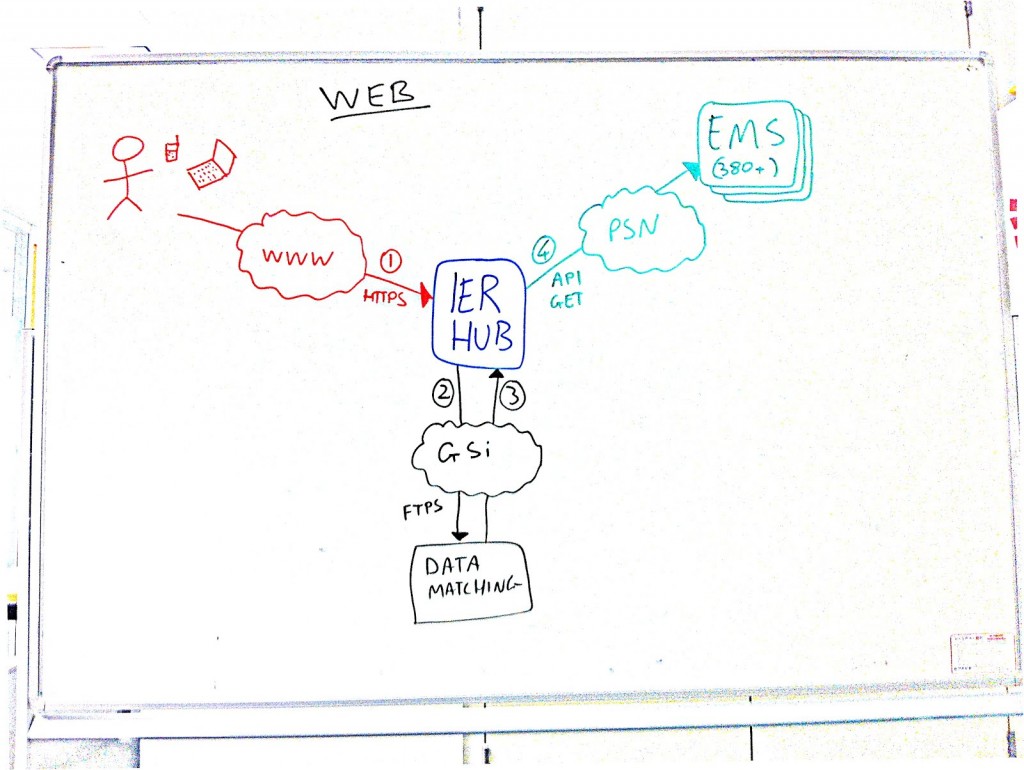 WEB
EMS
(380+)
PSN
WWW
1
HTTPS
4
API
GET
IER
HUB
2
3
GSi
FTPS
DATA
MATCHING